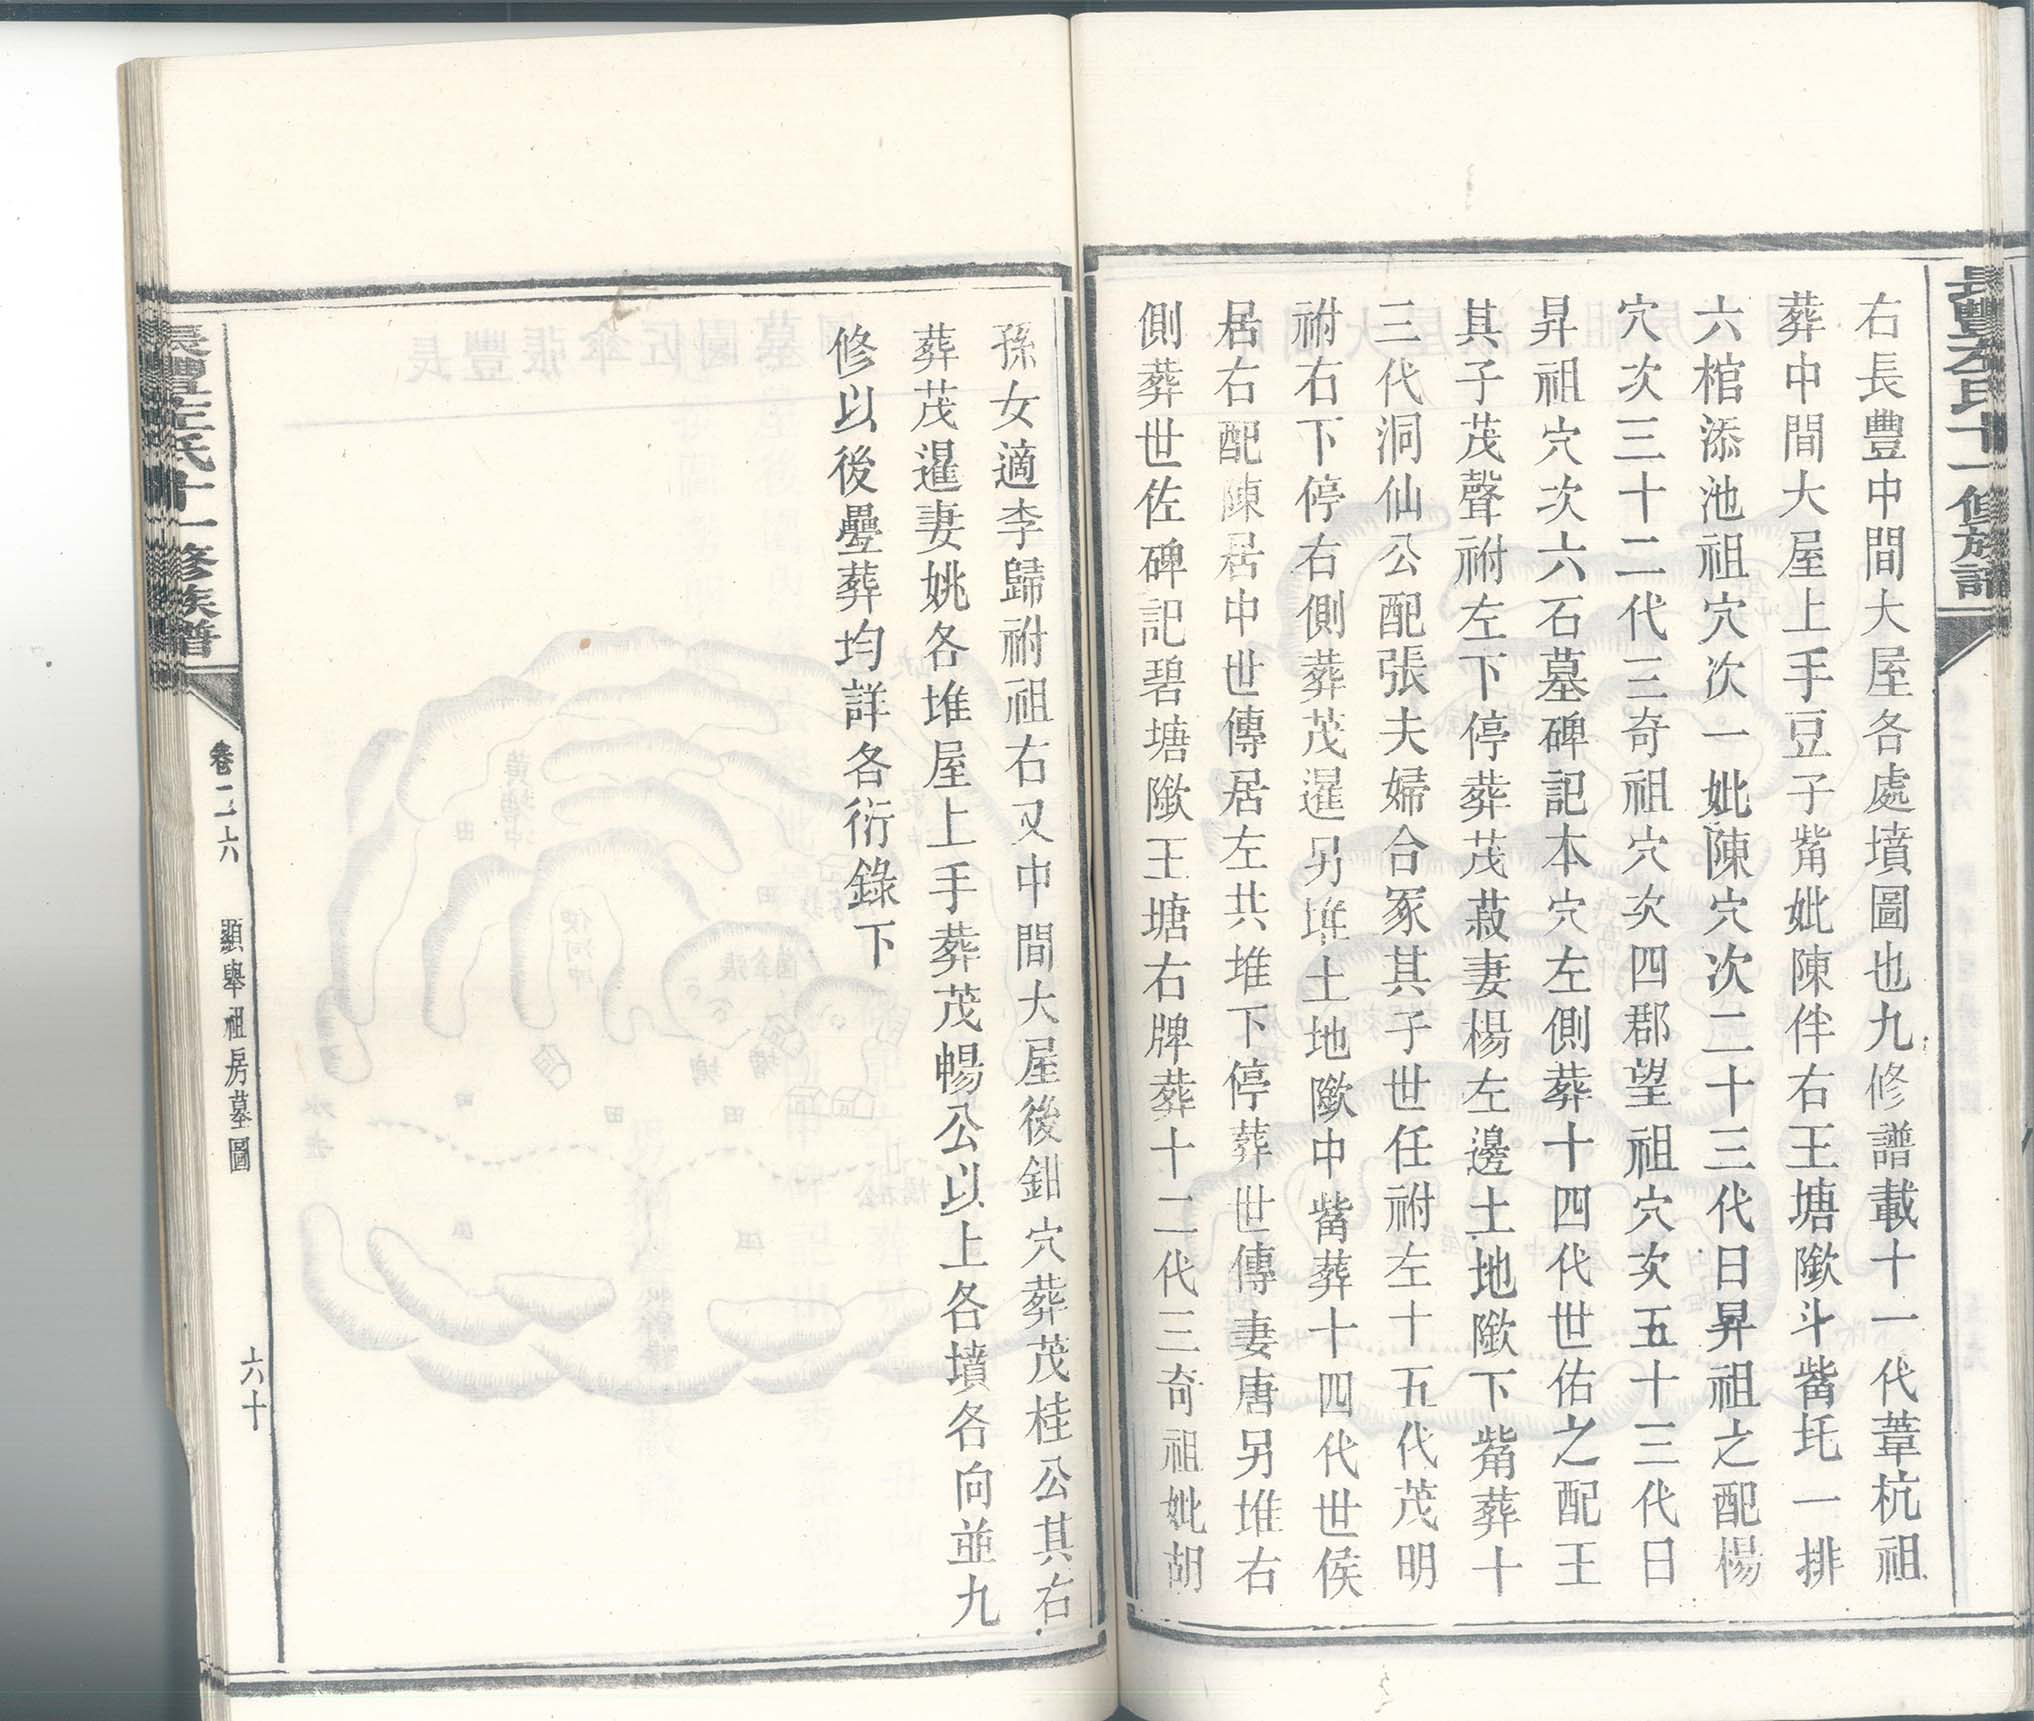 長豐左氏十一修族譜
右長豐中間大屋各處墳圖也九修譜載十一代葦杭祖
葬中間大屋上手豆子觜妣陳伴右王塘墘斗觜坉一排
六棺添池祖穴次一妣陳穴次二十三代日昇祖之配楊
穴次三十二代三奇祖穴次四郡望祖穴次五十三代日
昇祖穴次六石墓碑記本穴左側葬十四代世佑之配王
其子茂聲祔左下停葬茂菽妻楊左邊土地墘下觜葬十
三代洞仙公配張夫婦合冢其子世任祔左十五代茂明
祔右下停右側葬茂暹另堆土地墘中觜葬十四代世侯
居右配陳居中世傳居左共堆下停葬世傳妻唐另堆右
側葬世佐碑記碧塘墘王塘右牌葬十二代三奇祖妣胡
孫女適李歸祔祖右又中間大屋後鉗穴葬茂桂公其右
葬茂暹妻姚各堆屋上手葬茂暢公以上各墳各向並九
修以後疊葬均詳各衍錄下
長豐左氏十一修族譜
卷二六
顯舉祖房墓圖
六十